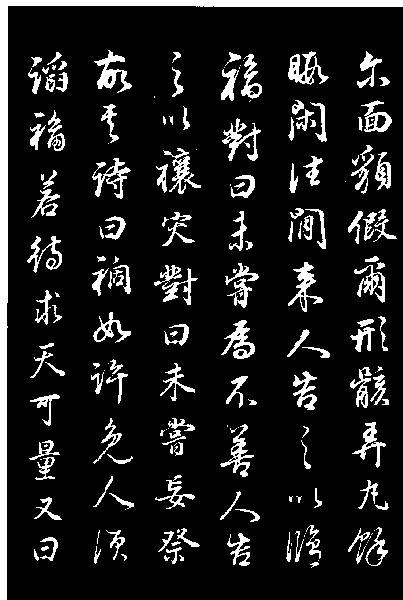 尓面貌假爾形骸弄丸餘
暇閑往間来人告之以脩
福對曰未嘗為不善人告
之以禳灾對曰未嘗妄祭
故其詩曰禍如許免人須
謟福若待求天可量又曰